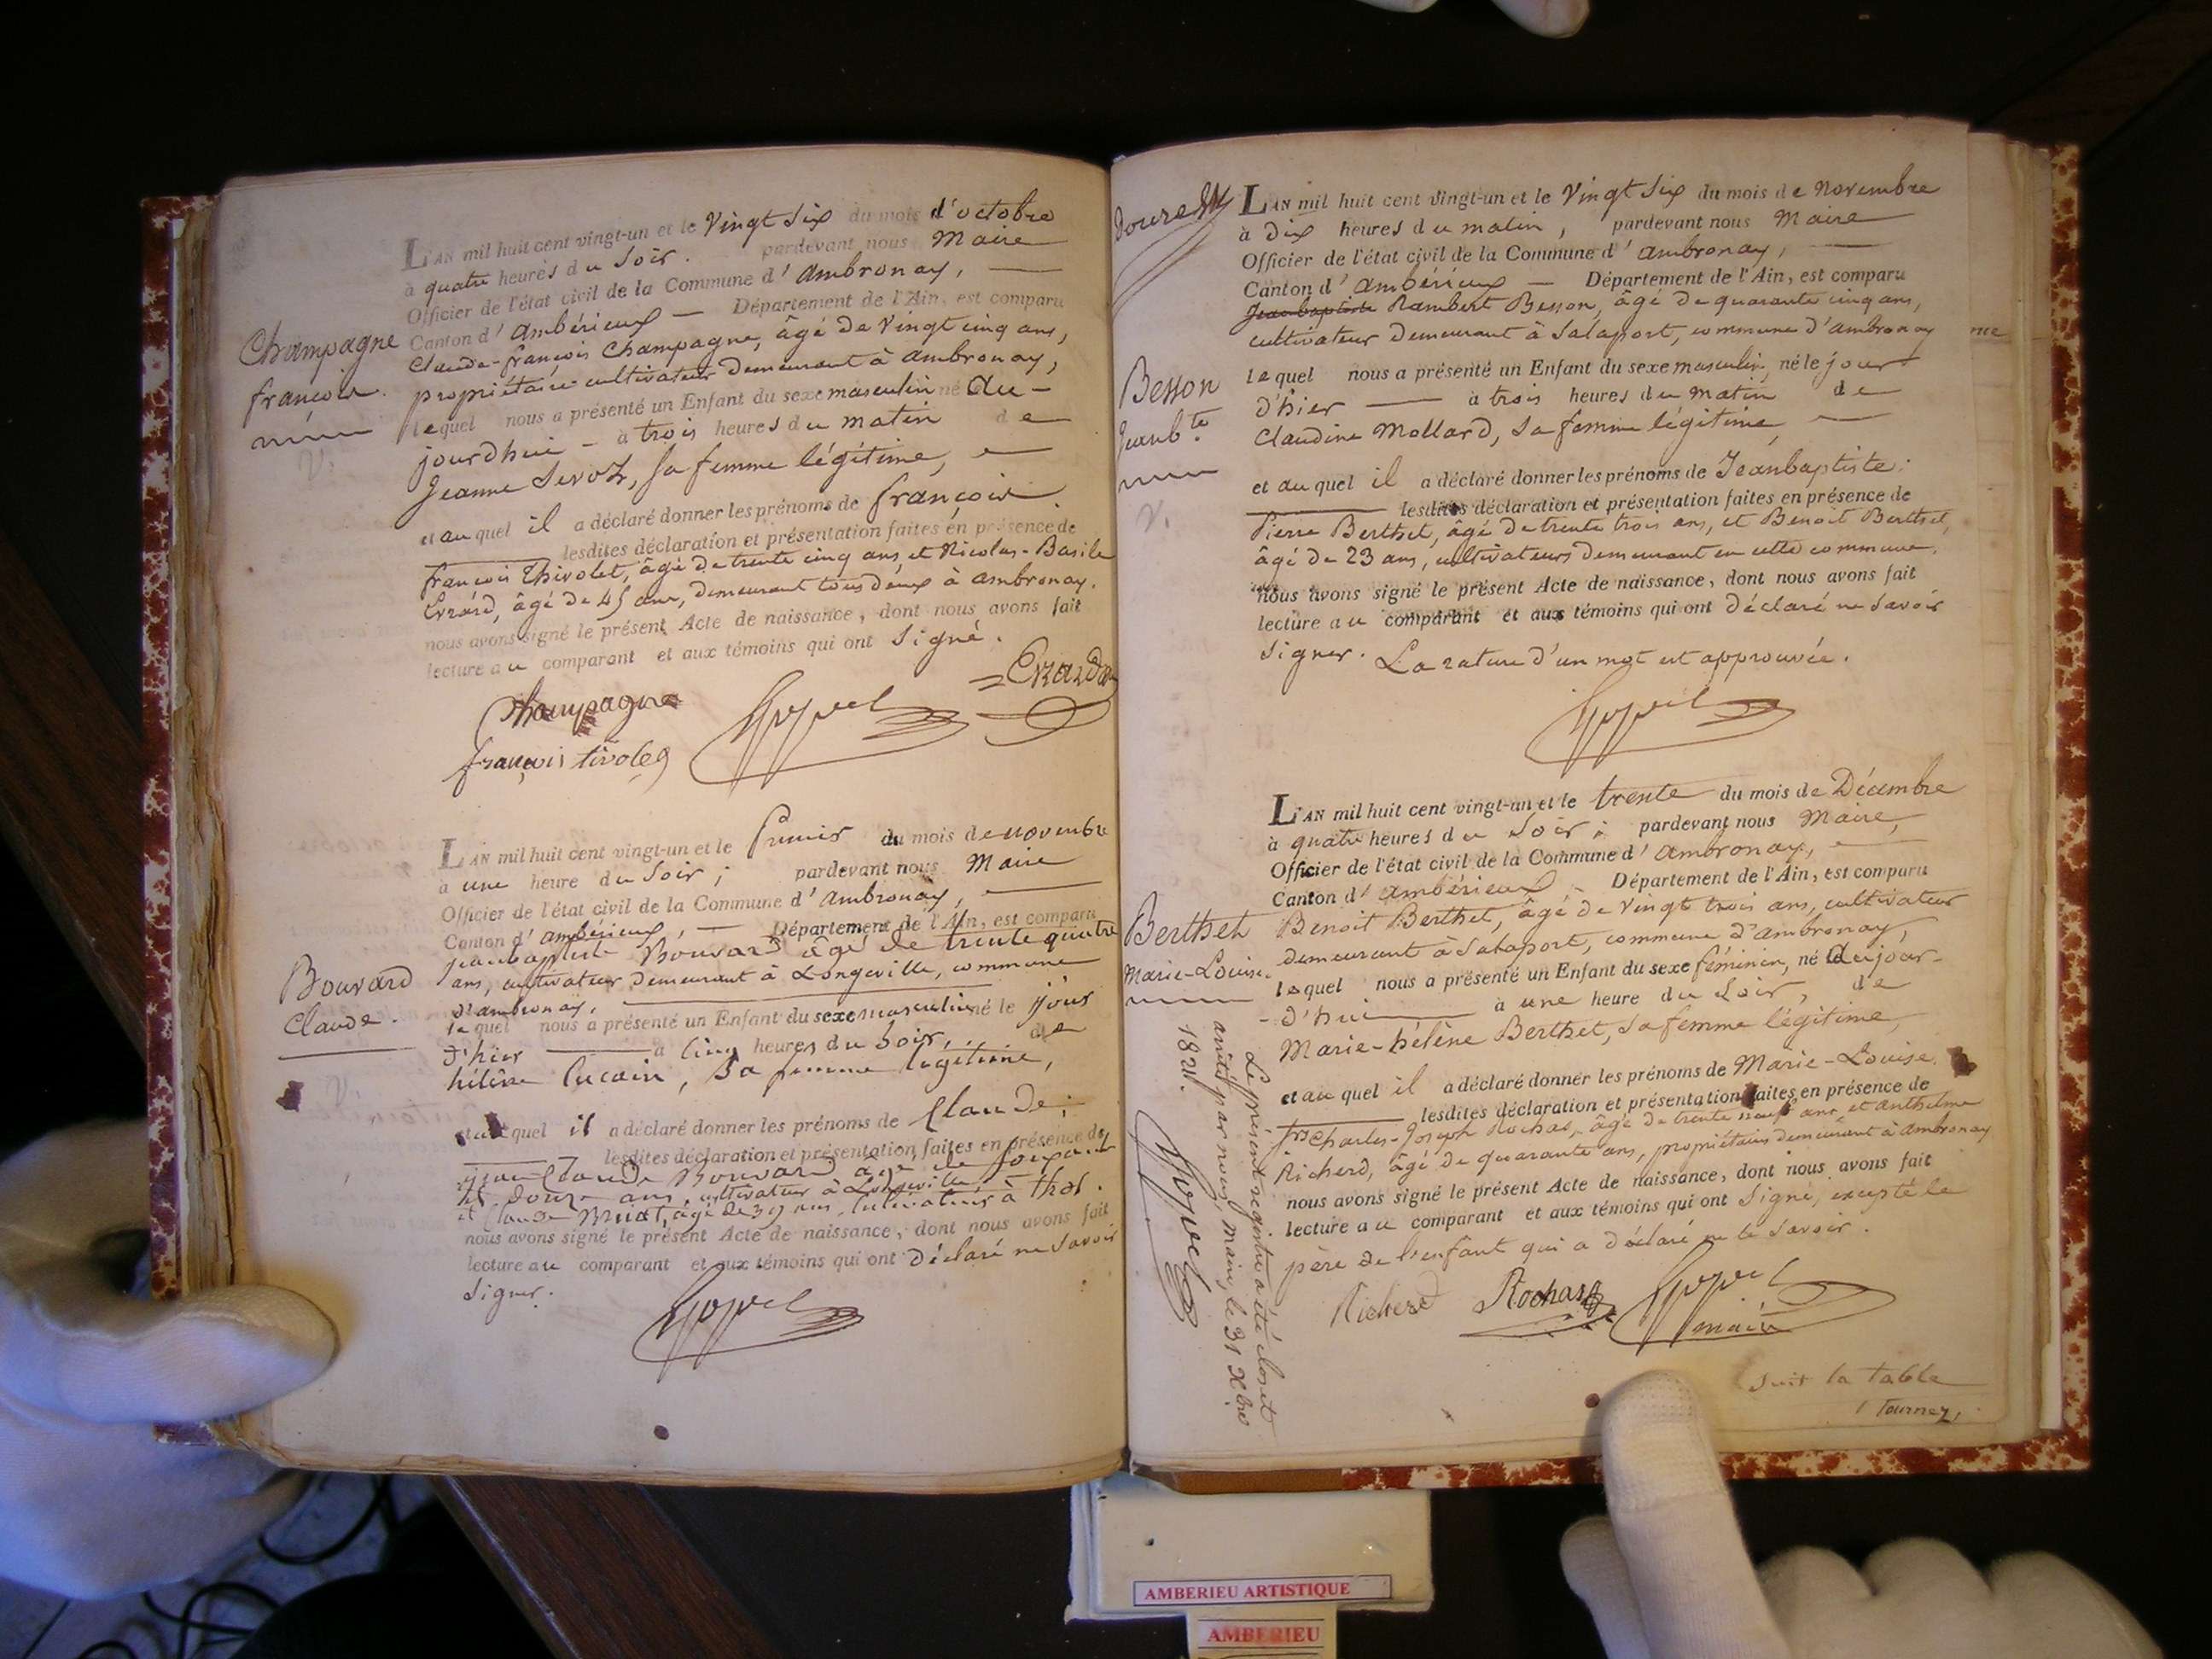 L'AN mil huit cent vingt-un et le Vingt Six du mois d'octobre
à quatre heures du Soir. pardevant nous Maire
Officier de l'état civil de la Commune d'ambronay,
Canton d'ambérieux — Département de l'Ain, est comparu
Claude-françois Champagne, âgé de Vingt cinq ans,
propriétaire cultivateur demeurant à ambronay,
lequel nous a présenté un Enfant du sexe masculin né au-
jourdhui - à trois heures du matin de
Jeanne Sevoz, sa femme légitime,
et auquel il a déclaré donner les prénoms de françois
lesdites déclaration et présentation faites en présence de
françois Thivolet, âgé de trente cinq ans, et Nicolas-Basile
Evrard, âgé de 45 ans, demeurant tous deux à ambronay.
nous avons signé le présent Acte de naissance, dont nous avons fait
lecture au comparant et aux témoins qui ont Signé.
Champagne
françois.
Champagne
Evrard
françois tivoleq
L'AN mil huit cent vingt-un et le Premier du mois de novembre
à une heure du Soir ; pardevant nous Maire
Officier de l'état civil de la Commune d'ambronay,
Canton d'ambérieux, — Département de l'Ain, est comparu
jeanbaptiste Bouvard âgé de trente quatre
ans, cultivateur demeurant à Longeville, commune
d'ambronay,
lequel nous a présenté un Enfant du sexe masculin né le jour
d'hier à Cinq heures du Soir, de
hélène Cucain, Sa femme légitime,
et auquel il a déclaré donner les prénoms de Claude;
lesdites déclaration et présentation faites en présence de
jean Claude Bouvard âgé de soixante
et douze ans, cultivateur à Longeville,
et Claude Bruat, âgé de 39 ans, cultivateur à thol.
nous avons signé le présent Acte de naissance, dont nous avons fait
lecture au comparant et aux témoins qui ont Déclaré ne Savoir
Signer.
Bouvard
Claude.
L'AN mil huit cent vingt-un et le Vingt Six du mois de Novembre
à Dix heures du matin, pardevant nous Maire
Officier de l'état civil de la Commune d'ambronay,
Canton d'ambérieux — Département de l'Ain, est comparu
Jeanbaptiste Rambert Besson, âgé de quarante cinq ans,
cultivateur demeurant à Salaport, commune d'ambronay
lequel nous a présenté un Enfant du sexe masculin, né le jour
d'hier à trois heures du matin de
Claudine Mollard, Sa femme légitime,
et auquel il a déclaré donner les prénoms de Jeanbaptiste.
lesdites déclaration et présentation faites en présence de
Pierre Berthet, âgé de trente trois ans, et Benoit Berthet,
âgé de 23 ans, cultivateurs demeurant en cette commune.
nous avons signé le présent Acte de naissance, dont nous avons fait
lecture au comparant et aux témoins qui ont Déclaré ne Savoir
Signer. La rature d'un mot est approuvée.
Besson
Jeanb.te
V.
L'AN mil huit cent vingt-un et le trente du mois de Décembre
à quatre heures du Soir ; pardevant nous Maire,
Officier de l'état civil de la Commune d'ambronay,
Canton d'ambérieux - Département de l'Ain, est comparu
Benoit Berthet, âgé de Vingt trois ans, cultivateur
demeurant à Salaport, commune d'ambronay,
lequel nous a présenté un Enfant du sexe féminin, né aujour-
-d'hui à une heure du Soir, de
Marie-hélène Berthet, Sa femme légitime,
et auquel il a déclaré donner les prénoms de Marie-Louise.
lesdites déclaration et présentation faites en présence de
frs Charles-Joseph Rochas, âgé de trente neuf ans, et anthelme
Richerd, âgé de quarante ans, propriétaires demeurant à Ambronay
nous avons signé le présent Acte de naissance, dont nous avons fait
lecture au comparant et aux témoins qui ont Signé, excepté le
père de l'enfant qui a déclaré ne le Savoir.
Berthet
Marie-Louise.
Le présent registre a été clos et
arrêté par nous, maire, le 31 Xbre
1821.
Richerd
Rochas
maire
Suit la table
Tournez,
AMBERIEU ARTISTIQUE
AMBERIEU